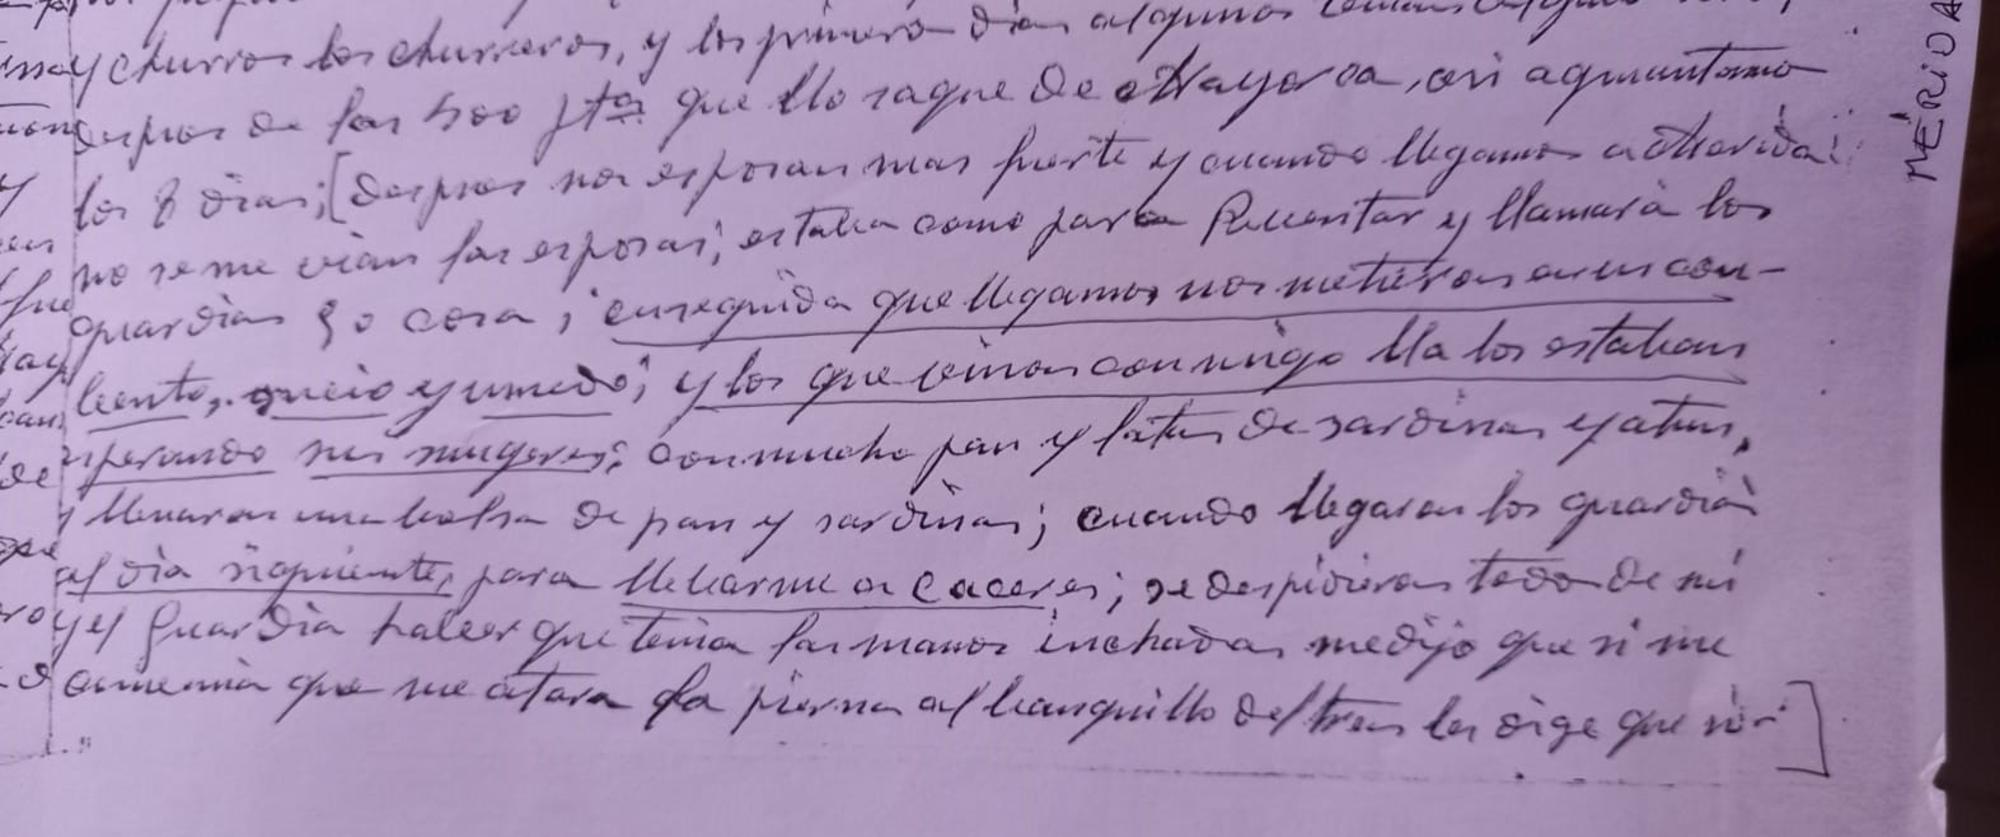 y churros los churreros, y los primero dias algunos
despues de las 500 pta que llo saque de Mayorca, asi aguantamo
los 8 dias; [despues nos esposan mas fuerte y cuando llegamos a Merida;
no se me vian las esposas; estaba como para Rebentar y llamara los
guardias y o cosa; enseguida que llegamos nos metieron en un con-
bento, sucio y umedo; y los que venian con migo lla los estaban
esperando sus mugeres; con mucho pan y latas de sardinas y atun,
y llenaron una bolsa de pan y sardinas; cuando llegaron los guardia
al dia siguiente, para llebarme a Caceres; se despidieron todo de mi
y el guardia halver que tenia las manos inchadas me dijo que si me
combenia que me atara la pierna al banquillo del tren les dige que si]
MÉRIDA